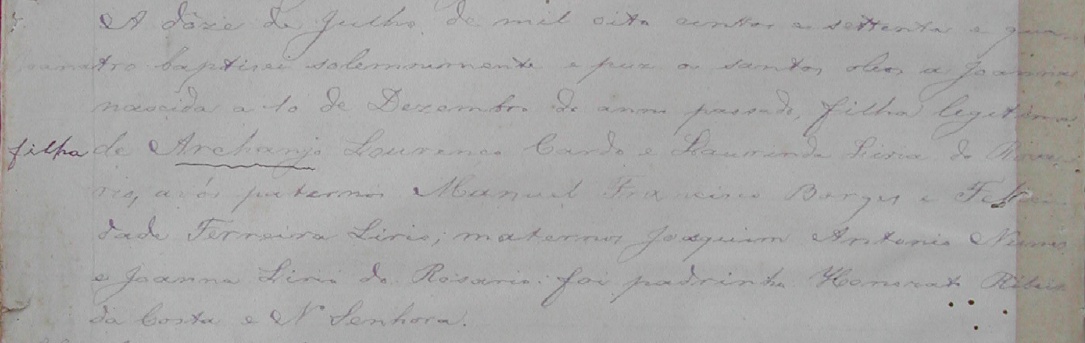 A dôze de Julho de mil oito centos e settenta e qua
tro baptisei solemnemente e puz os santos oleos a Joanna
nascida a 10 de Dezembro do anno passado, filha legitima
filha de Archanjo Lourenço Cardo e Laurinda Liria do Rosa
rio, avós paternos Manuel Francisco Borges e Feli
dade Ferreira Lirio; maternos Joaquim Antonio Nunes
e Joanna Liri do Rosario: foi padrinho Honorat Ribeiro
da Costa e Nª Senhora.